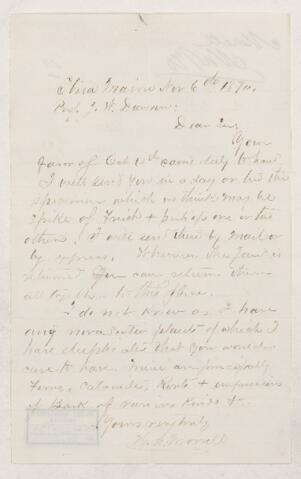 Maine Nov 6th 1870.
Prof. J. W. Dawson;
Dear Sir
Your
favor of Oct 10th came duly to hand
I will send you in a day or two the
specimen which we think may be
spike of fruit & perhaps one or two
others. I will send them by mail or
by express. Whenever the fruit is
returned you can return them
all by them to this office.
I do not know as I have
any nova water plants of which I
have duplicates that you would
care to have. Mine are principally
ferns, calamites, & impressions
of Bark of various kinds &c.
Yours very truly
Morrill